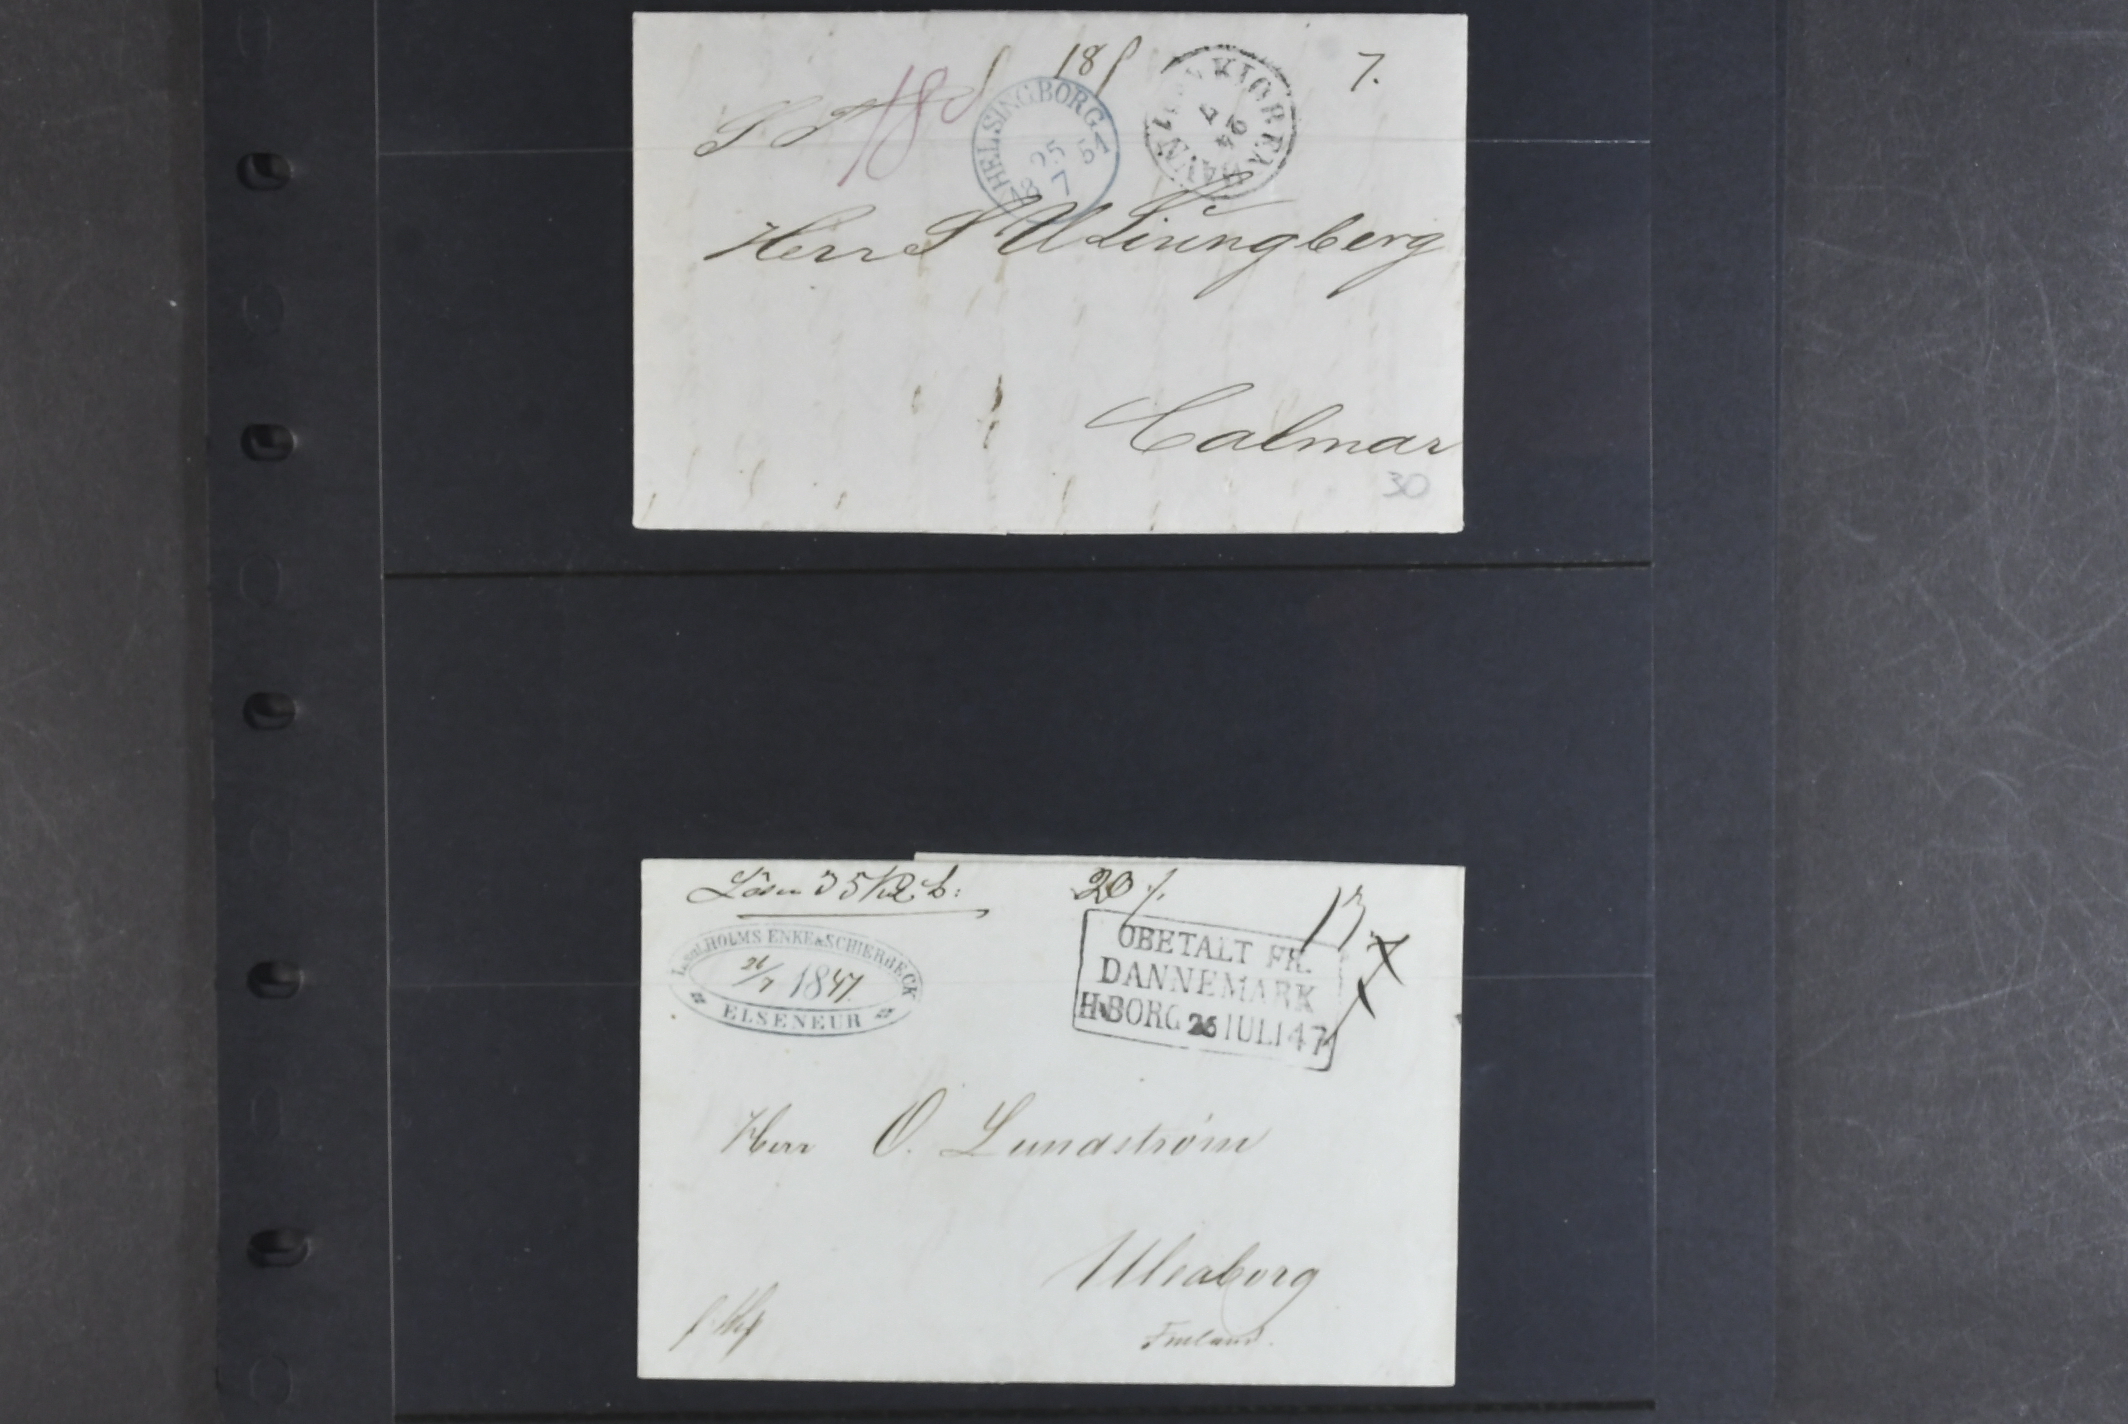 18 18 7.
S T
HELSINGBORG
25 7
1857
KIØBENHAVN
24 7
Herr S Ljungberg
Calmar
30
20
13
HOLMS ENKE & SCHIERBECK
26/7 1847.
ELSENEUR
OBETALT FR.
DANNEMARK
H·BORG 26 JULI 47
Herr O. Lundström
Uleaborg
Finland.